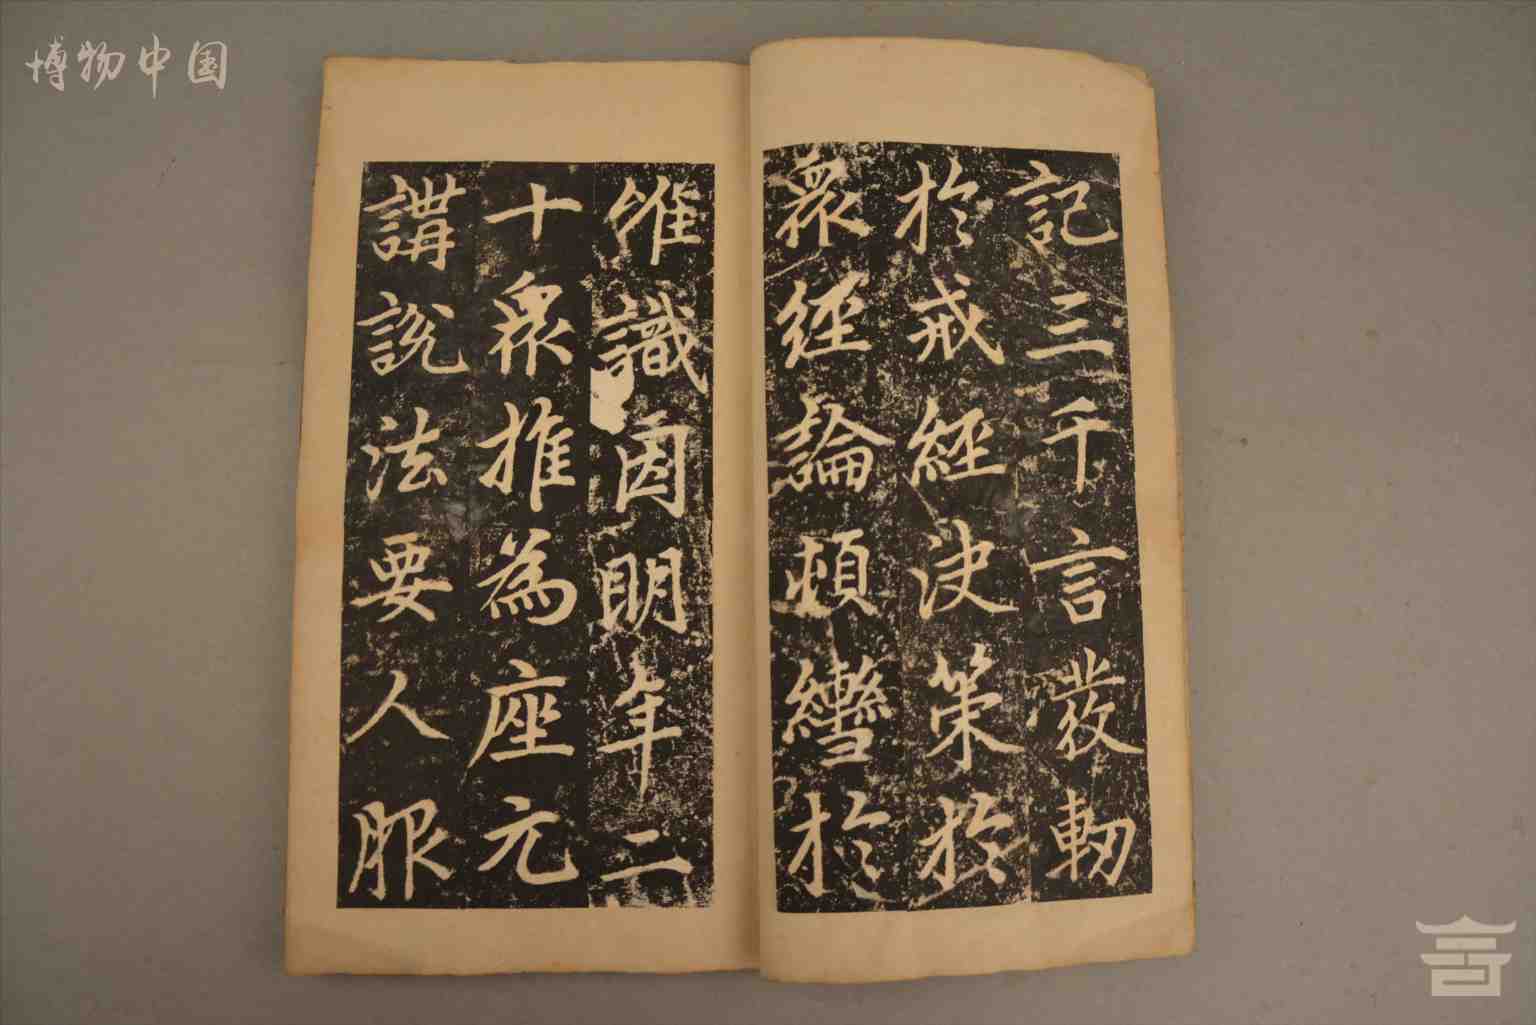 博物中国
記三千言發軔
於戒經決策於
衆經論頓轡於
惟識因明年二
十衆推為座元
講說法要人服